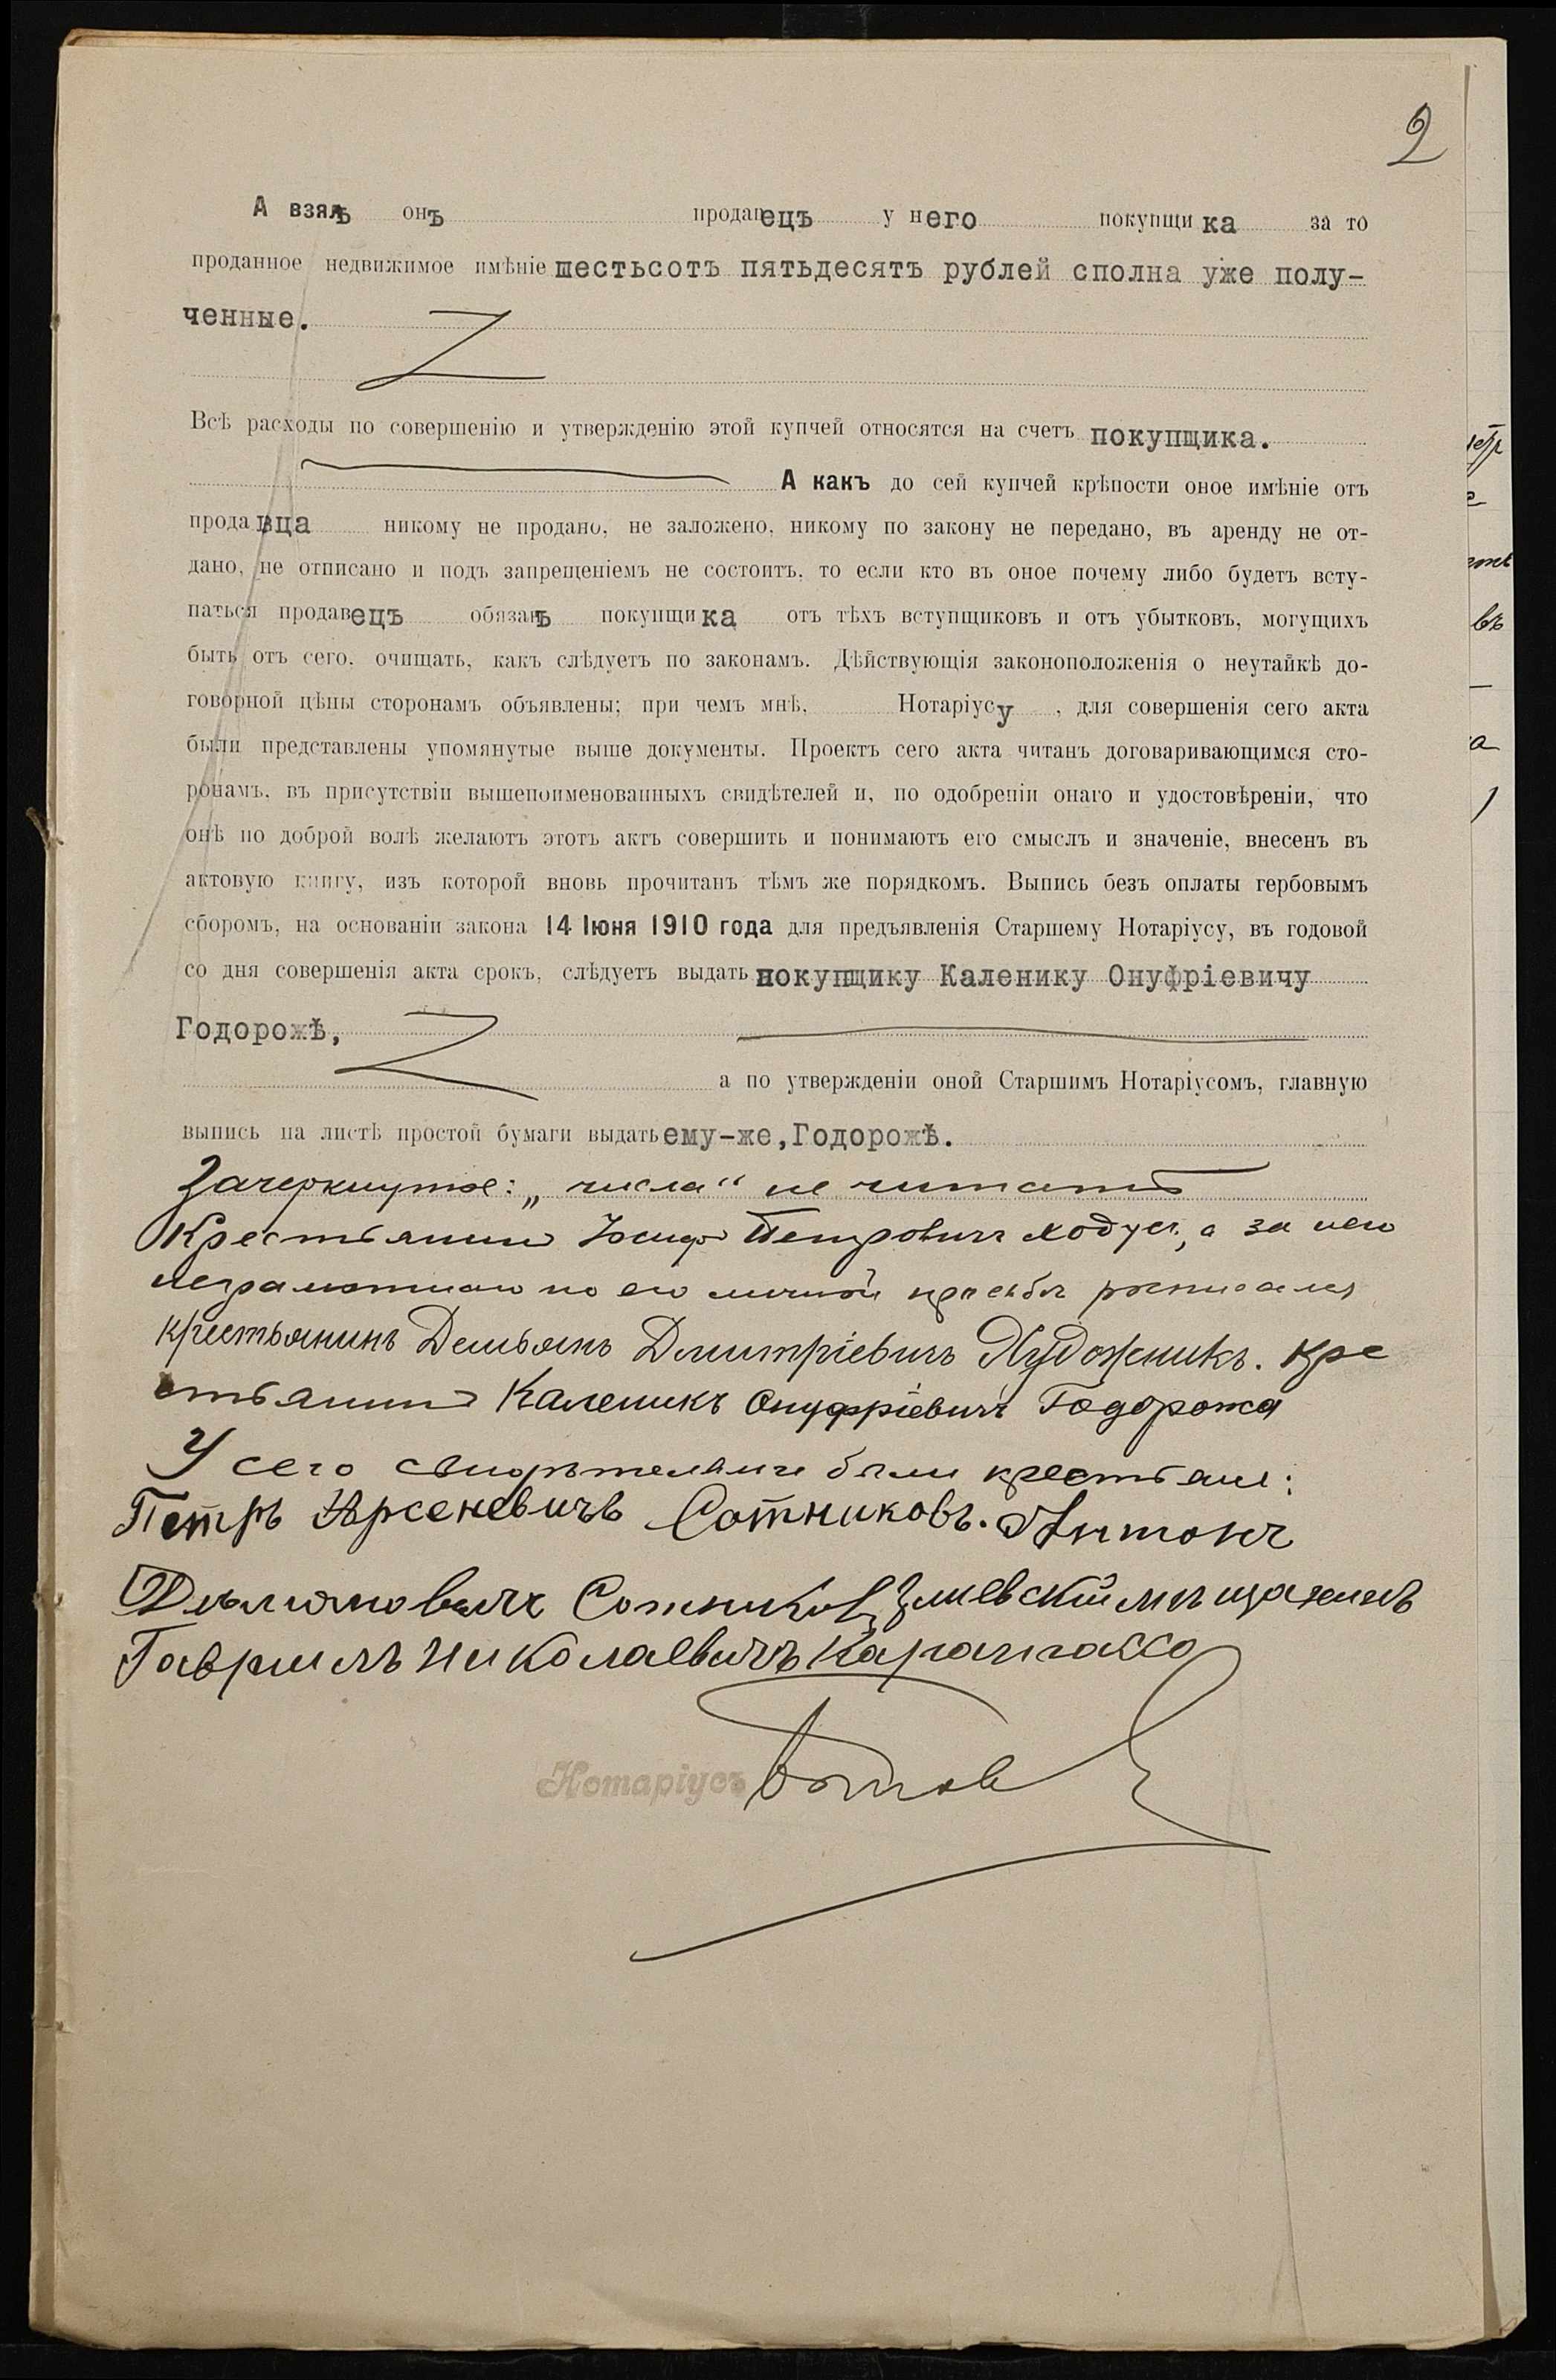 2
А взялъ онъ продавецъ у него покупщика за то
проданное недвижимое имѣніе шестьсотъ пятьдесятъ рублей сполна уже полу-
ченные.
Всѣ расходы по совершенію и утвержденію этой купчей относятся на счетъ покупщика.
А какъ до сей купчей крѣпости оное имѣніе отъ
продавца никому не продано, не заложено, никому по закону не передано, въ аренду не от-
дано, не отписано и подъ запрещеніемъ не состоитъ, то если кто въ оное почему либо будетъ всту-
паться продавецъ обязанъ покупщика отъ тѣхъ вступщиковъ и отъ убытковъ, могущихъ
быть отъ сего, очищать, какъ слѣдуетъ по законамъ. Дѣйствующія законоположенія о неутайкѣ до-
говорной цѣны сторонамъ объявлены; при чемъ мнѣ, Нотаріусу, для совершенія сего акта
были представлены упомянутые выше документы. Проектъ сего акта читанъ договаривающимся сто-
ронамъ, въ присутствіи вышепоименованныхъ свидѣтелей и, по одобреніи онаго и удостовѣреніи, что
онѣ по доброй волѣ желаютъ этотъ актъ совершить и понимаютъ его смыслъ и значеніе, внесенъ въ
актовую книгу, изъ которой вновь прочитанъ тѣмъ же порядкомъ. Выпись безъ оплаты гербовымъ
сборомъ, на основаніи закона 14 Іюня 1910 года для предъявленія Старшему Нотаріусу, въ годовой
со дня совершенія акта срокъ, слѣдуетъ выдать покупщику Каленику Онуфріевичу
Годорожѣ,
а по утвержденіи оной Старшимъ Нотаріусомъ, главную
выпись на листѣ простой бумаги выдать ему-же, Годорожѣ.
Зачеркнутое: „числа“ не читать
Крестьянинъ Іосифъ Петровичъ Ходус, а за него
неграмотнаго по его личной просьбѣ росписался
крестьянинъ Демьянъ Дмитріевичъ Художникъ. Кре
стьянинъ Каленикъ Онуфріевичъ Годорожа
У сего свидѣтелями были крестьяне:
Петръ Арсеневичъ Сотниковъ. Антонъ
Сотников, Змиевскій мѣщанинъ
Гавриилъ Николаевичъ
Нотаріусъ